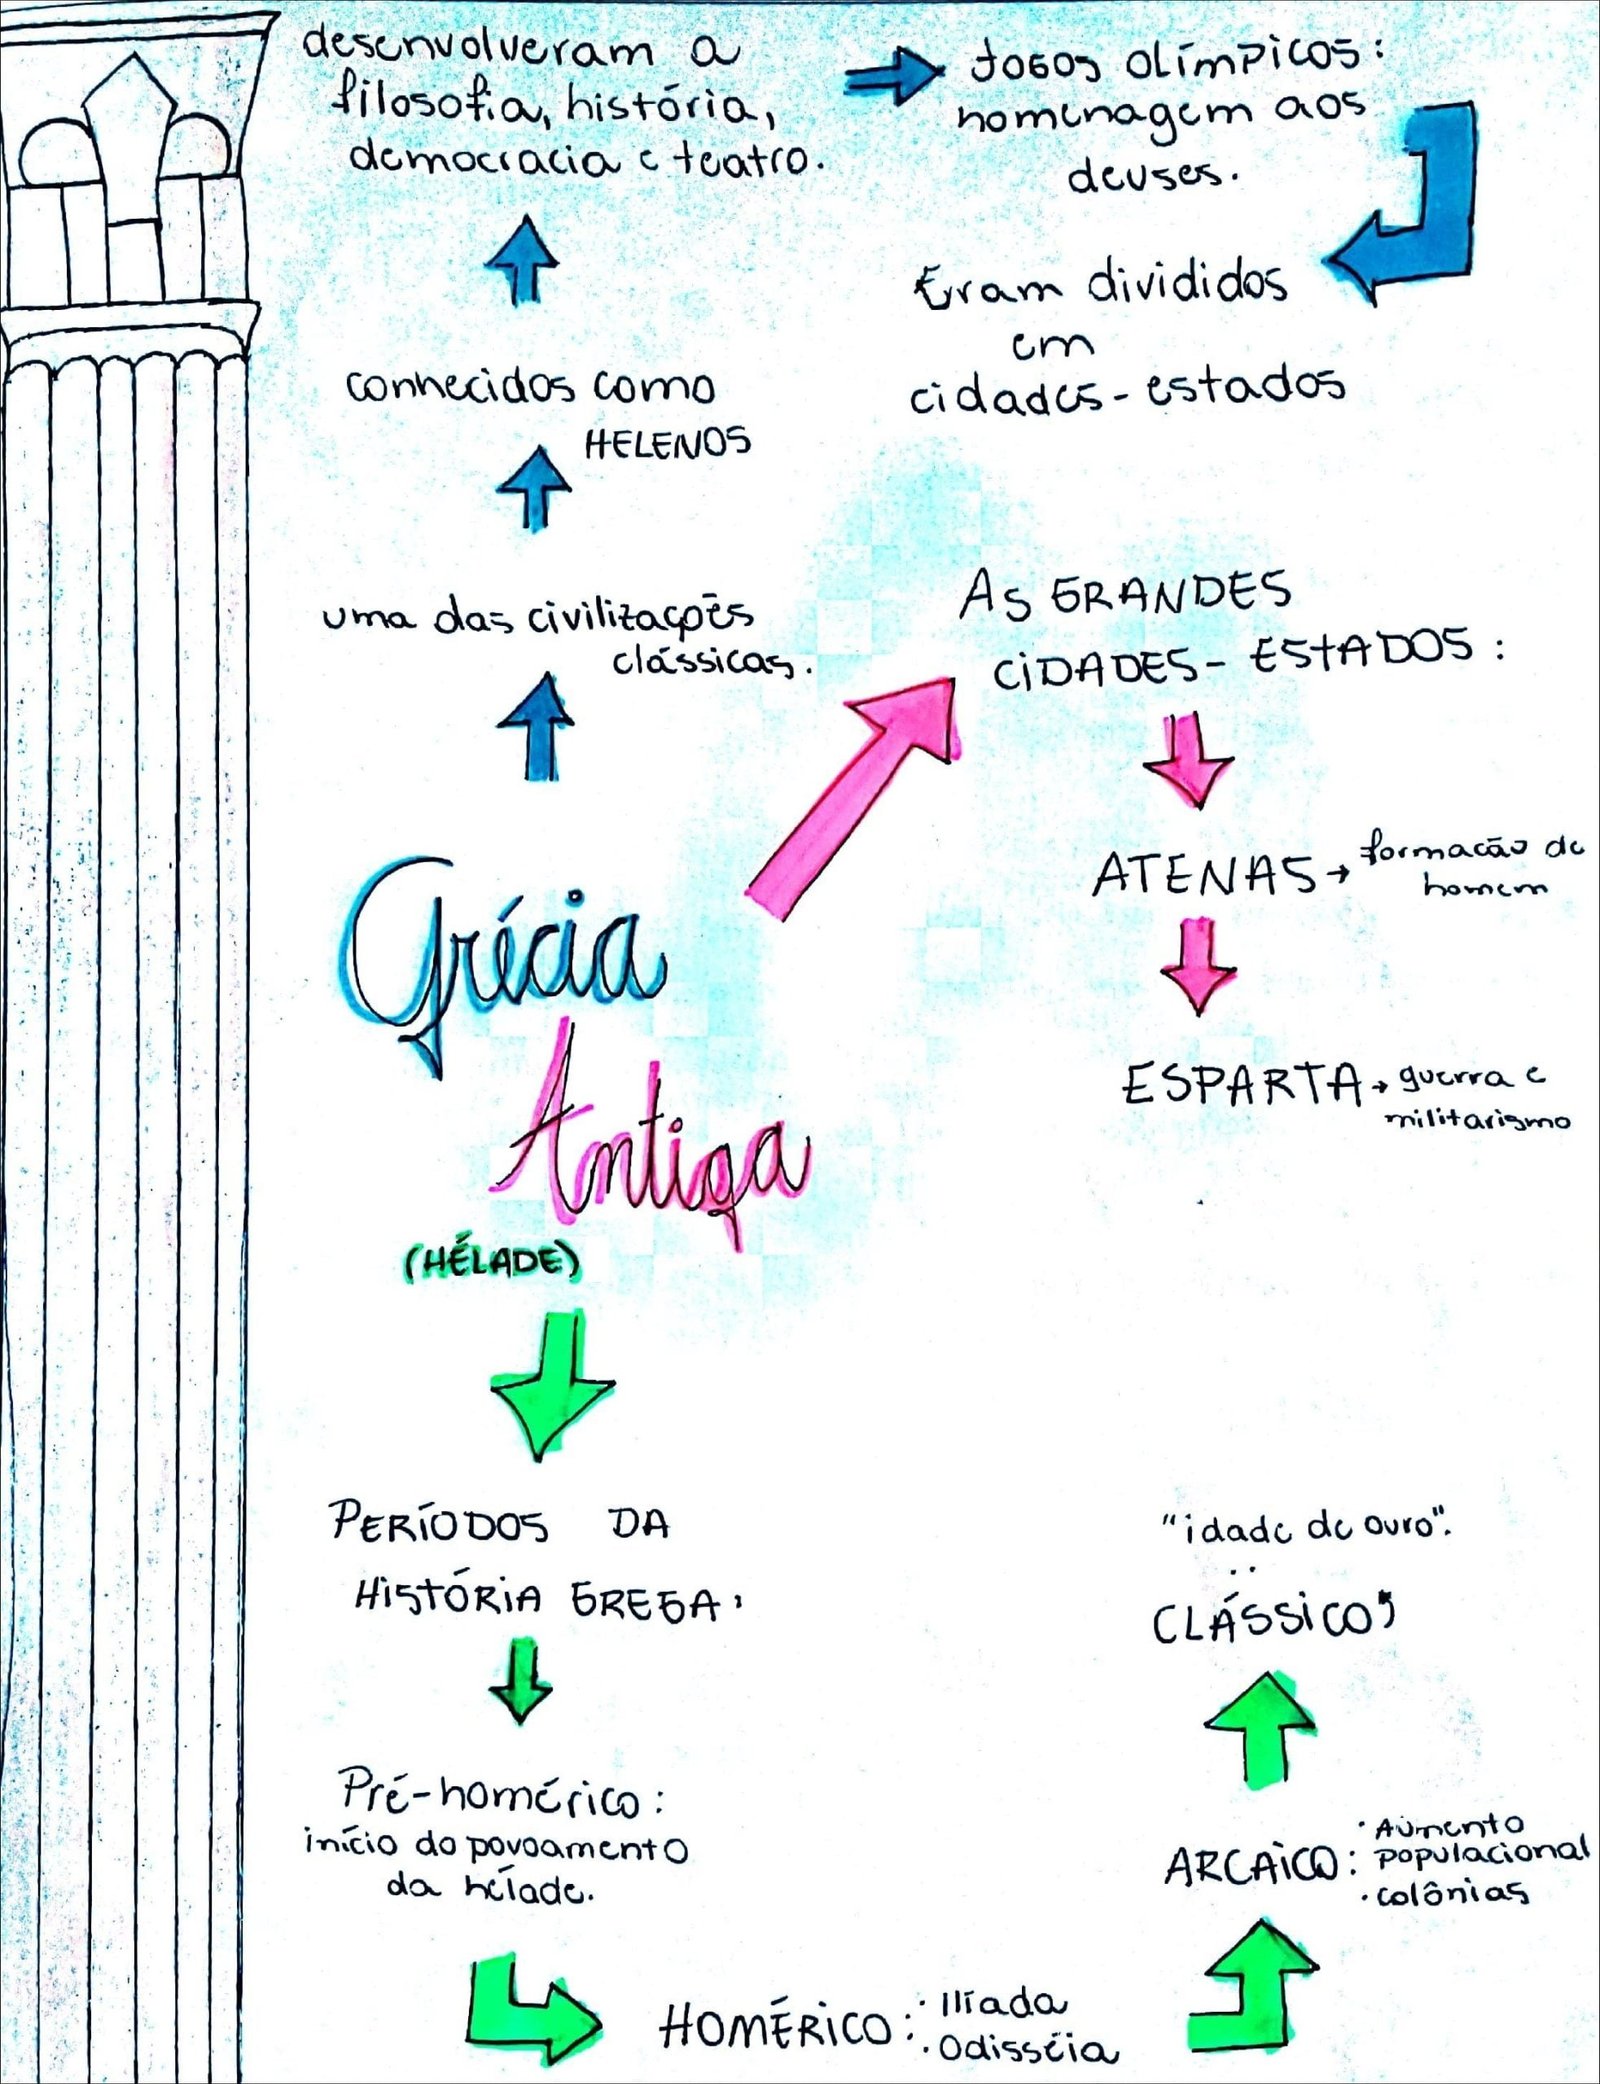 desenvolveram a
filosofia, história,
democracia e teatro.
Jogos olímpicos:
homenagem aos
deuses.
Eram divididos
em
cidades-estados
conhecidos como
HELENOS
uma das civilizações
clássicas.
AS GRANDES
CIDADES-ESTADOS:
ATENAS → formacão do
homem
ESPARTA → guerra e
militarismo
Grécia
Antiga
(HÉLADE)
PERÍODOS DA
HISTÓRIA GREGA:
Pré-homérico:
início do povoamento
da hélade.
HOMÉRICO: · Ilíada
· Odisséia
ARCAICO: · Aumento
populacional
· colônias
CLÁSSICO,
"idade de ouro".